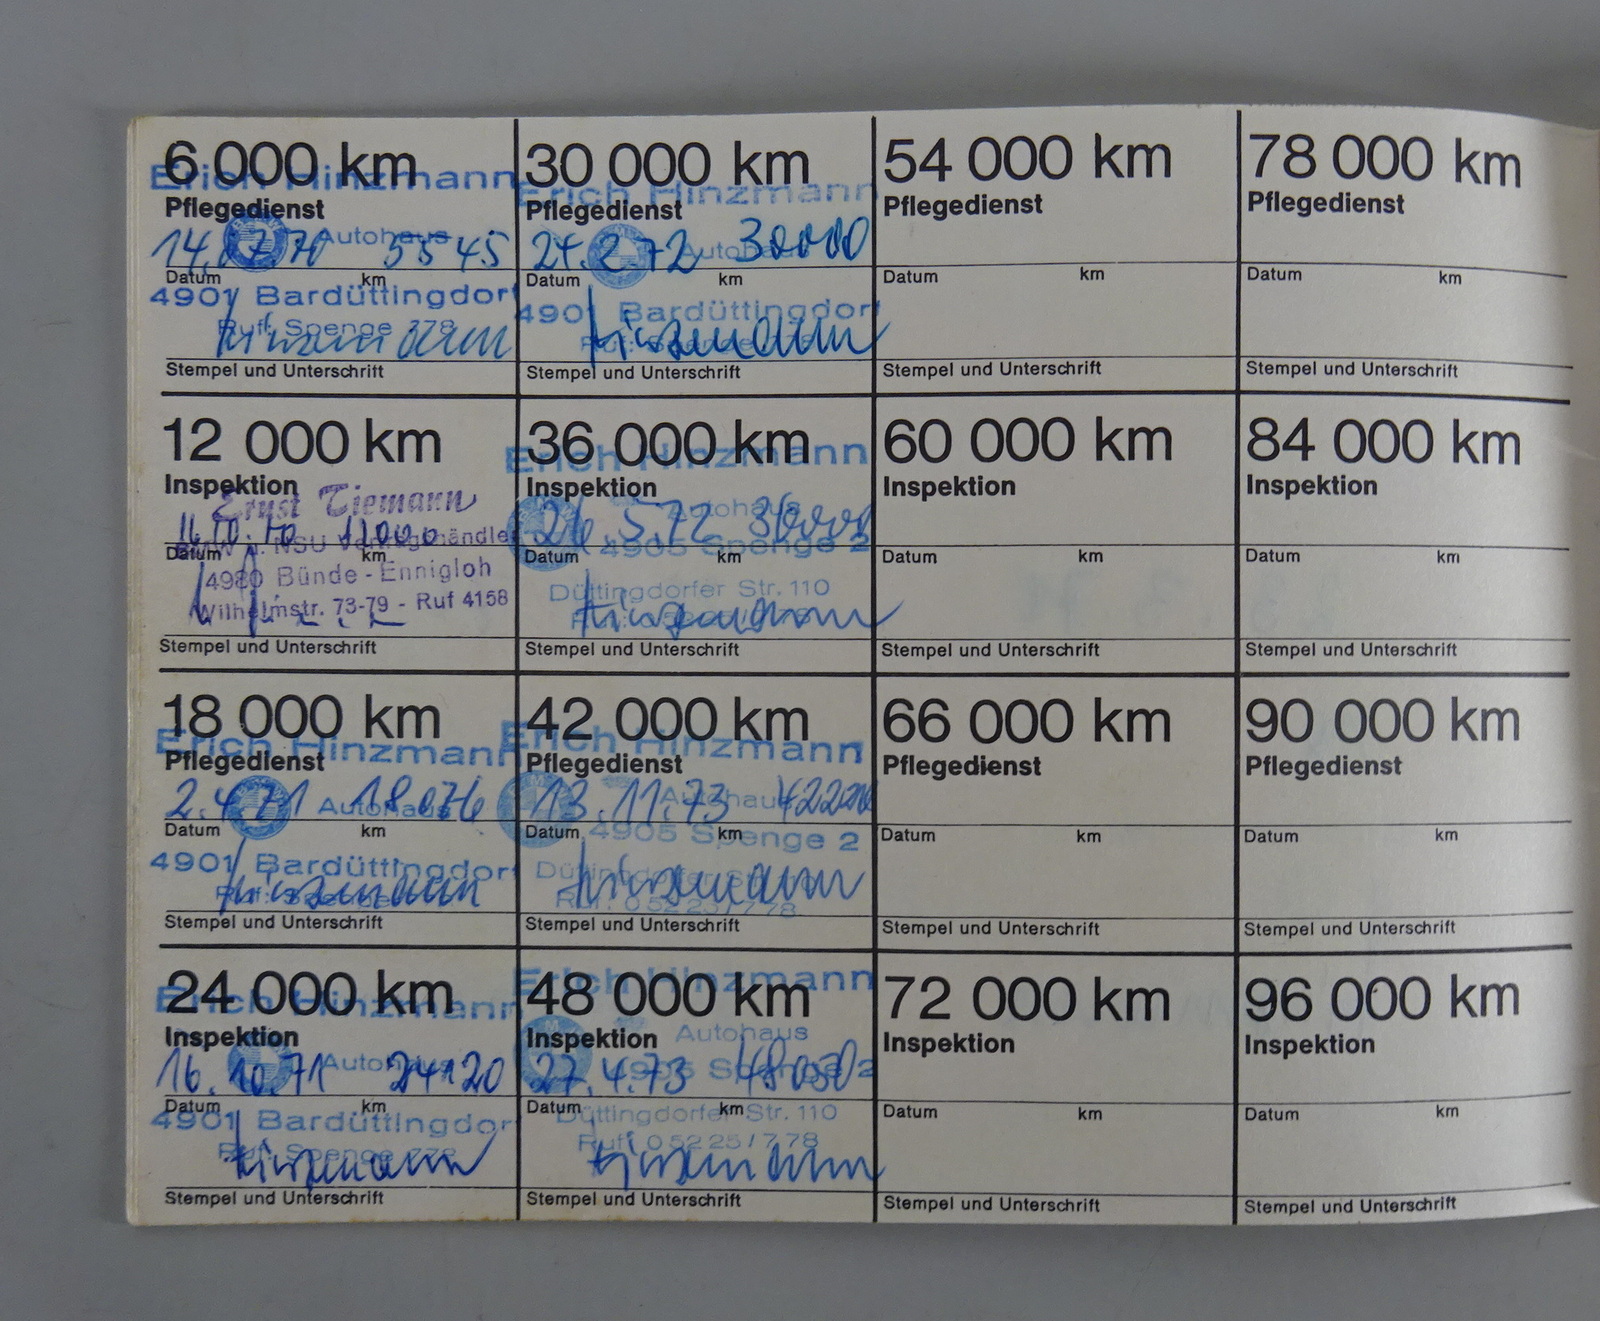 6 000 km
Pflegedienst
Erich Hinzmann
Autohaus
Datum km
4901 Bardüttingdorf
Ruf: Spenge 778
Hinzmann
Stempel und Unterschrift
30 000 km
Pflegedienst
Erich Hinzmann
Autohaus
24.2.72 30000
Datum km
4901 Bardüttingdorf
Hinzmann
Stempel und Unterschrift
54 000 km
Pflegedienst
Datum km
Stempel und Unterschrift
78 000 km
Pflegedienst
Datum km
Stempel und Unterschrift
12 000 km
Inspektion
Ernst Tiemann
NSU Vertragshändler
Datum km
4980 Bünde - Ennigloh
Wilhelmstr. 73-79 - Ruf 4158
Stempel und Unterschrift
36 000 km
Inspektion
Erich Hinzmann
Autohaus
26.5.72 36000
Datum km
4905 Spenge 2
Düttingdorfer Str. 110
Hinzmann
Stempel und Unterschrift
60 000 km
Inspektion
Datum km
Stempel und Unterschrift
84 000 km
Inspektion
Datum km
Stempel und Unterschrift
18 000 km
Pflegedienst
Erich Hinzmann
Autohaus
2.4.71 18076
Datum km
4901 Bardüttingdorf
Hinzmann
Stempel und Unterschrift
42 000 km
Pflegedienst
Erich Hinzmann
Autohaus
13.11.73
Datum km
4905 Spenge 2
Ruf: 0 52 25 / 7 78
Hinzmann
Stempel und Unterschrift
66 000 km
Pflegedienst
Datum km
Stempel und Unterschrift
90 000 km
Pflegedienst
Datum km
Stempel und Unterschrift
24 000 km
Inspektion
Erich Hinzmann
Autohaus
16.10.71 24120
Datum km
4901 Bardüttingdorf
Ruf: Spenge 778
Hinzmann
Stempel und Unterschrift
48 000 km
Inspektion
Erich Hinzmann
Autohaus
27.4.73 48050
4905 Spenge 2
Datum km
Düttingdorfer Str. 110
Ruf: 0 52 25 / 7 78
Hinzmann
Stempel und Unterschrift
72 000 km
Inspektion
Datum km
Stempel und Unterschrift
96 000 km
Inspektion
Datum km
Stempel und Unterschrift